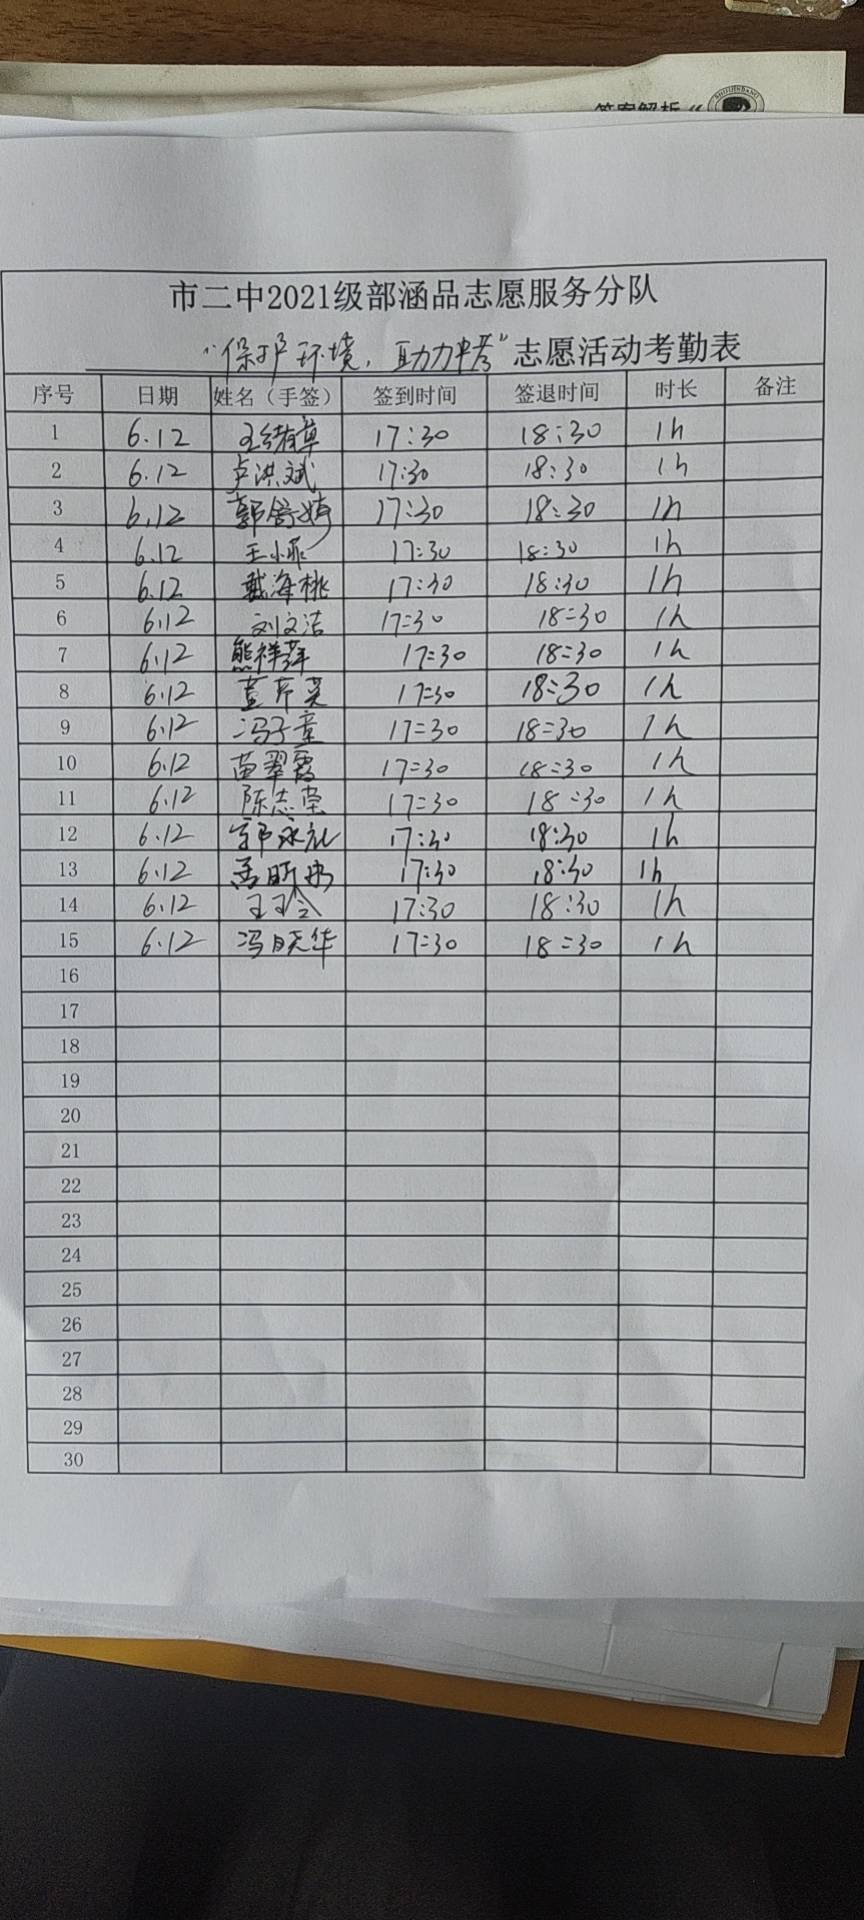 答案解析
市二中2021级部涵品志愿服务分队
"保护环境，助力中考"志愿活动考勤表
序号 日期 姓名（手签） 签到时间 签退时间 时长 备注
1 6.12 王绪章 17:30 18:30 1h
2 6.12 卢洪斌 17:30 18:30 1h
3 6.12 郭舒婷 17:30 18:30 1h
4 6.12 王小 17:30 18:30 1h
5 6.12 戴海桃 17:30 18:30 1h
6 6.12 刘文洁 17:30 18:30 1h
7 6.12 熊祥萍 17:30 18:30 1h
8 6.12 17:30 18:30 1h
9 6.12 冯子童 17:30 18:30 1h
10 6.12 苗翠霞 17:30 18:30 1h
11 6.12 陈志荣 17:30 18:30 1h
12 6.12 郭永礼 17:30 18:30 1h
13 6.12 孟昕 17:30 18:30 1h
14 6.12 王玲 17:30 18:30 1h
15 6.12 冯晓华 17:30 18:30 1h
16
17
18
19
20
21
22
23
24
25
26
27
28
29
30